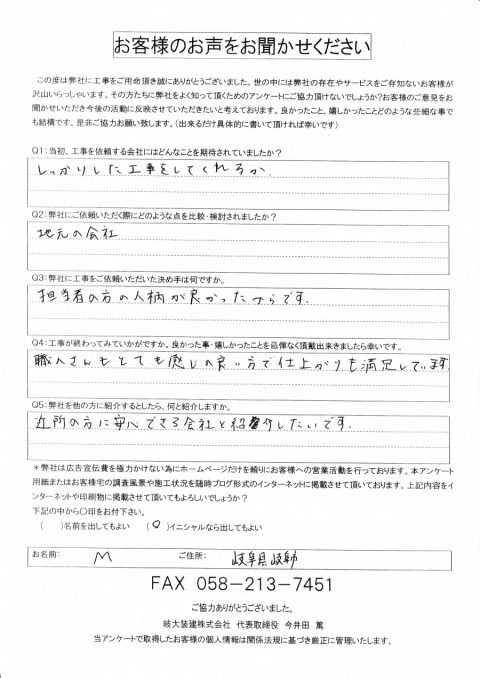 お客様のお声をお聞かせください
この度は弊社に工事をご用命頂き誠にありがとうございました。世の中には弊社の存在やサービスをご存知ないお客様が
沢山いらっしゃいます。その方たちに弊社をよく知って頂くためのアンケートにご協力頂けないでしょうか?お客様のご意見をお
聞かせいただき今後の活動に反映させていただきたいと考えております。良かったこと、嬉しかったことどのような些細な事で
も結構です。是非ご協力お願い致します。(出来るだけ具体的に書いて頂ければ幸いです)
Q1:当初、工事を依頼する会社にはどんなことを期待されていましたか?
しっかりした工事をしてくれるか、
Q2:弊社にご依頼いただく際にどのような点を比較・検討されましたか?
地元の会社
Q3:弊社に工事をご依頼いただいた決め手は何ですか。
担当者の方の人柄が良かったからです.
Q4:工事が終わってみていかがですか。良かった事・嬉しかったことを忌憚なく頂戴出来きましたら幸いです。
職人さんもとても感じの良い方で仕上がりも満足しています.
Q5:弊社を他の方に紹介するとしたら、何と紹介しますか。
近所の方に安心できる会社と紹介したいです.
*弊社は広告宣伝費を極力かけない為にホームページだけを頼りにお客様への営業活動を行っております。本アンケート
用紙またはお客様宅の調査風景や施工状況を随時ブログ形式のインターネットに掲載させて頂いております。上記内容をイ
ンターネットや印刷物に掲載させて頂いてもよろしいでしょうか?
下記の中から○印をお付下さい。
( )名前を出してもよい (○)イニシャルなら出してもよい
お名前: M ご住所: 岐阜県岐阜市
FAX 058-213-7451
ご協力ありがとうございました。
岐大装建株式会社 代表取締役 今井田 篤
当アンケートで取得したお客様の個人情報は関係法規に基づき厳正に管理いたします。